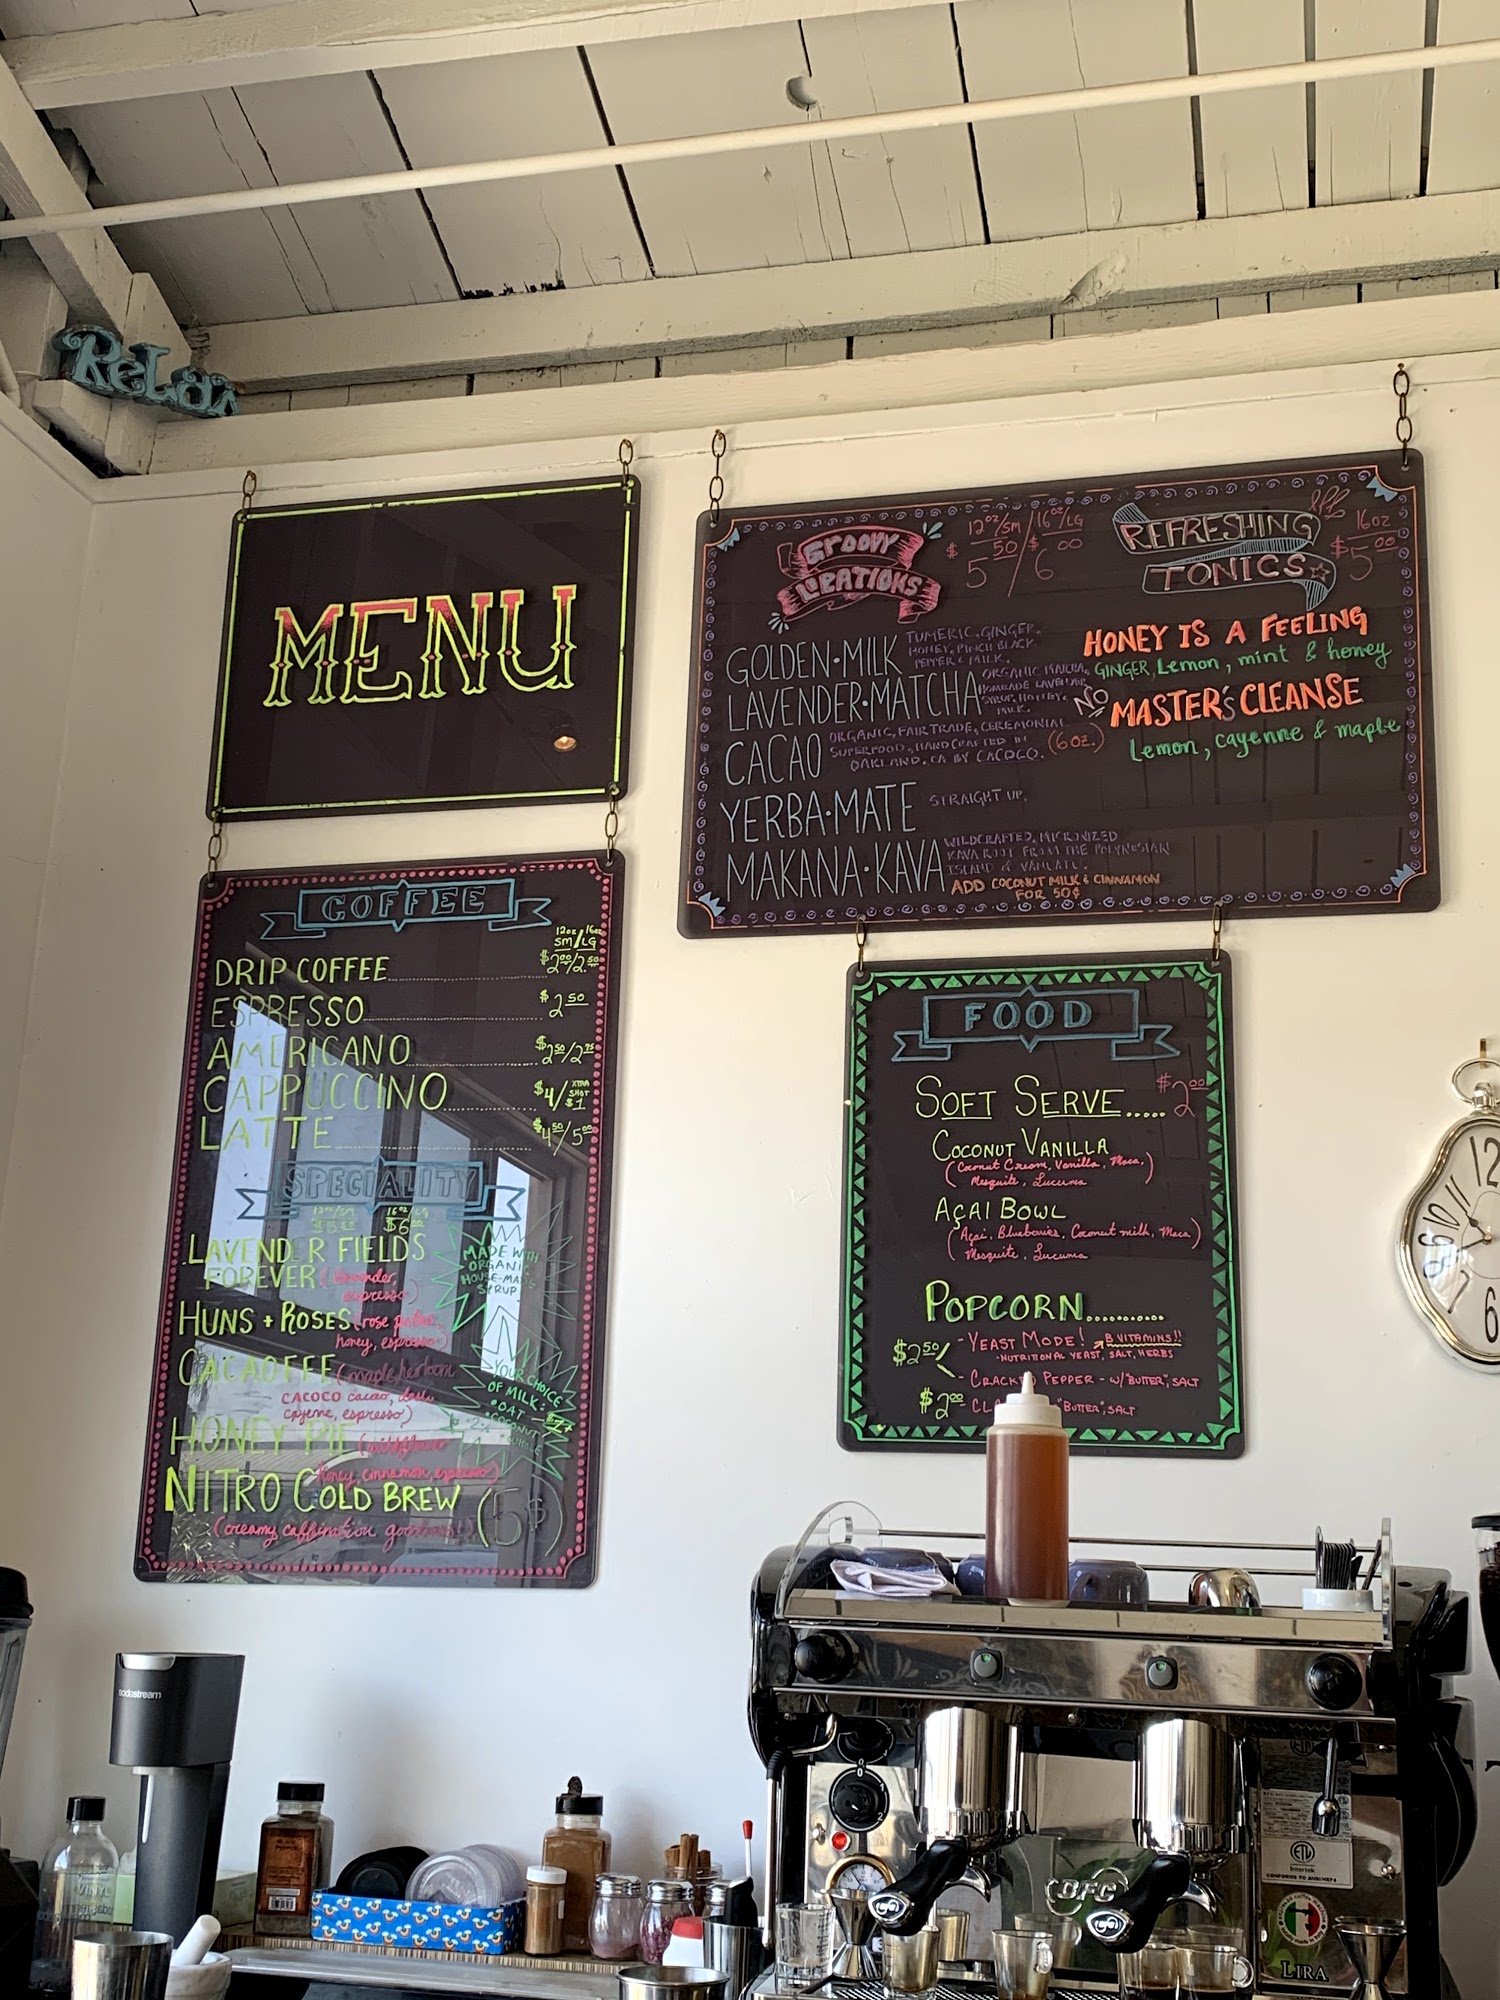 RELAX
MENU
COFFEE
12oz 16oz
SM/LG
DRIP COFFEE $2.00/2.50
ESPRESSO $2.50
AMERICANO $2.50/2.75
CAPPUCCINO $4/XTRA SHOT $1
LATTE $4.50/5.00
SPECIALITY
12oz/SM 16oz/LG
$6
LAVENDER FIELDS
FOREVER (lavender,
espresso)
MADE WITH
ORGANIC
HOUSE-MADE
SYRUP
HUNS + ROSES (rose
honey, espresso)
CACAOFFE (maple, heirloom
CACOCO cacao,
cayenne, espresso)
YOUR CHOICE
OF MILK:
•OAT
COCONUT
WHOLE
HONEY PIE (wildflower
honey, cinnamon, espresso)
NITRO COLD BREW (5$)
(creamy caffination goodness!)
GROOVY
LIBATIONS
12oz/SM 16oz/LG
$5.50/$6.00
GOLDEN•MILK TUMERIC, GINGER,
HONEY, PINCH BLACK
PEPPER & MILK.
LAVENDER•MATCHA ORGANIC MATCHA,
HOMEADE LAVENDER
SYRUP, HONEY,
MILK.
CACAO ORGANIC, FAIR TRADE, CEREMONIAL
SUPERFOOD, HANDCRAFTED IN (6oz.)
OAKLAND, CA BY CACOCO.
YERBA•MATE STRAIGHT UP.
MAKANA•KAVA WILDCRAFTED, MICRONIZED
KAVA ROOT FROM THE POLYNESIAN
ISLAND of VANUATU.
ADD COCONUT MILK & CINNAMON
FOR 50¢
REFRESHING
TONICS
16oz
$5.00
HONEY IS A FEELING
GINGER, Lemon, mint & honey
NO MASTER'S CLEANSE
Lemon, cayenne & maple
FOOD
SOFT SERVE..... $2.00
COCONUT VANILLA
(Coconut Cream, Vanilla, Maca,
Mesquite, Lucuma)
AÇAI BOWL
(Açai, Blueberries, Coconut milk, Maca
Mesquite, Lucuma)
POPCORN...........
$2.50/ - YEAST MODE! B VITAMINS!!
-NUTRITIONAL YEAST, SALT, HERBS
- CRACKED PEPPER - W/"BUTTER", SALT
$2.00 CLA "BUTTER", SALT
12
11
10
9
8
7
6
sodastream
VINYL
BFC
ETL
Intertek
LIRA